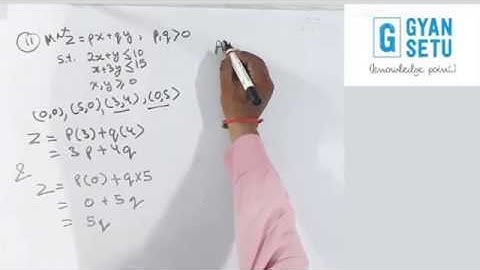 (ii) Max Z = px + qy, p,q > 0
s.t. 2x + y ≤ 10
x + 3y ≤ 15
x, y ≥ 0
(0,0), (5,0), (3,4), (0,5)
Z = p(3) + q(4)
= 3p + 4q
&
Z = p(0) + q×5
= 0 + 5q
= 5q
G GYAN
SETU
(knowledge point)